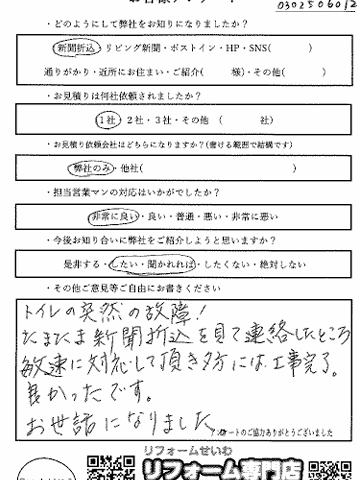 0302506012
・どのようにして弊社をお知りになりましたか？
新聞折込・リビング新聞・ポストイン・HP・SNS(　　　)
通りがかり・近所にお住まい・ご紹介(　　　様)・その他(　　　)
・お見積りは何社依頼されましたか？
1社・2社・3社・その他（　　　社）
・お見積り依頼会社はどちらになりますか？(書ける範囲で結構です)
弊社のみ・他社(　　　)
・担当営業マンの対応はいかがでしたか？
非常に良い・良い・普通・悪い・非常に悪い
・今後お知り合いに弊社をご紹介しようと思いますか？
是非する・したい・聞かれれば・したくない・絶対しない
・その他ご意見等ご自由にお書きください
トイレの突然の故障！
たまたま新聞折込を見て連絡したところ
敏速に対応して頂き夕方には工事完了。
良かったです。
お世話になりました
アンケートのご協力ありがとうございました
リフォームせいわ
リフォーム専門店